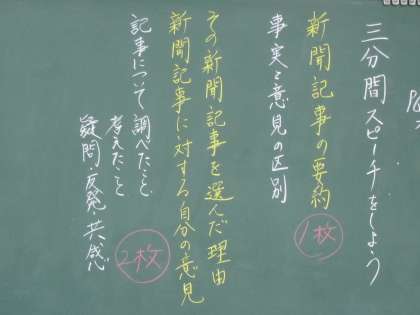 三分間スピーチをしよう
新聞記事の要約
1枚
事実と意見の区別
その新聞記事を選んだ理由
新聞記事に対する自分の意見
記事について調べたこと
考えたこと
疑問・反発・共感
2枚